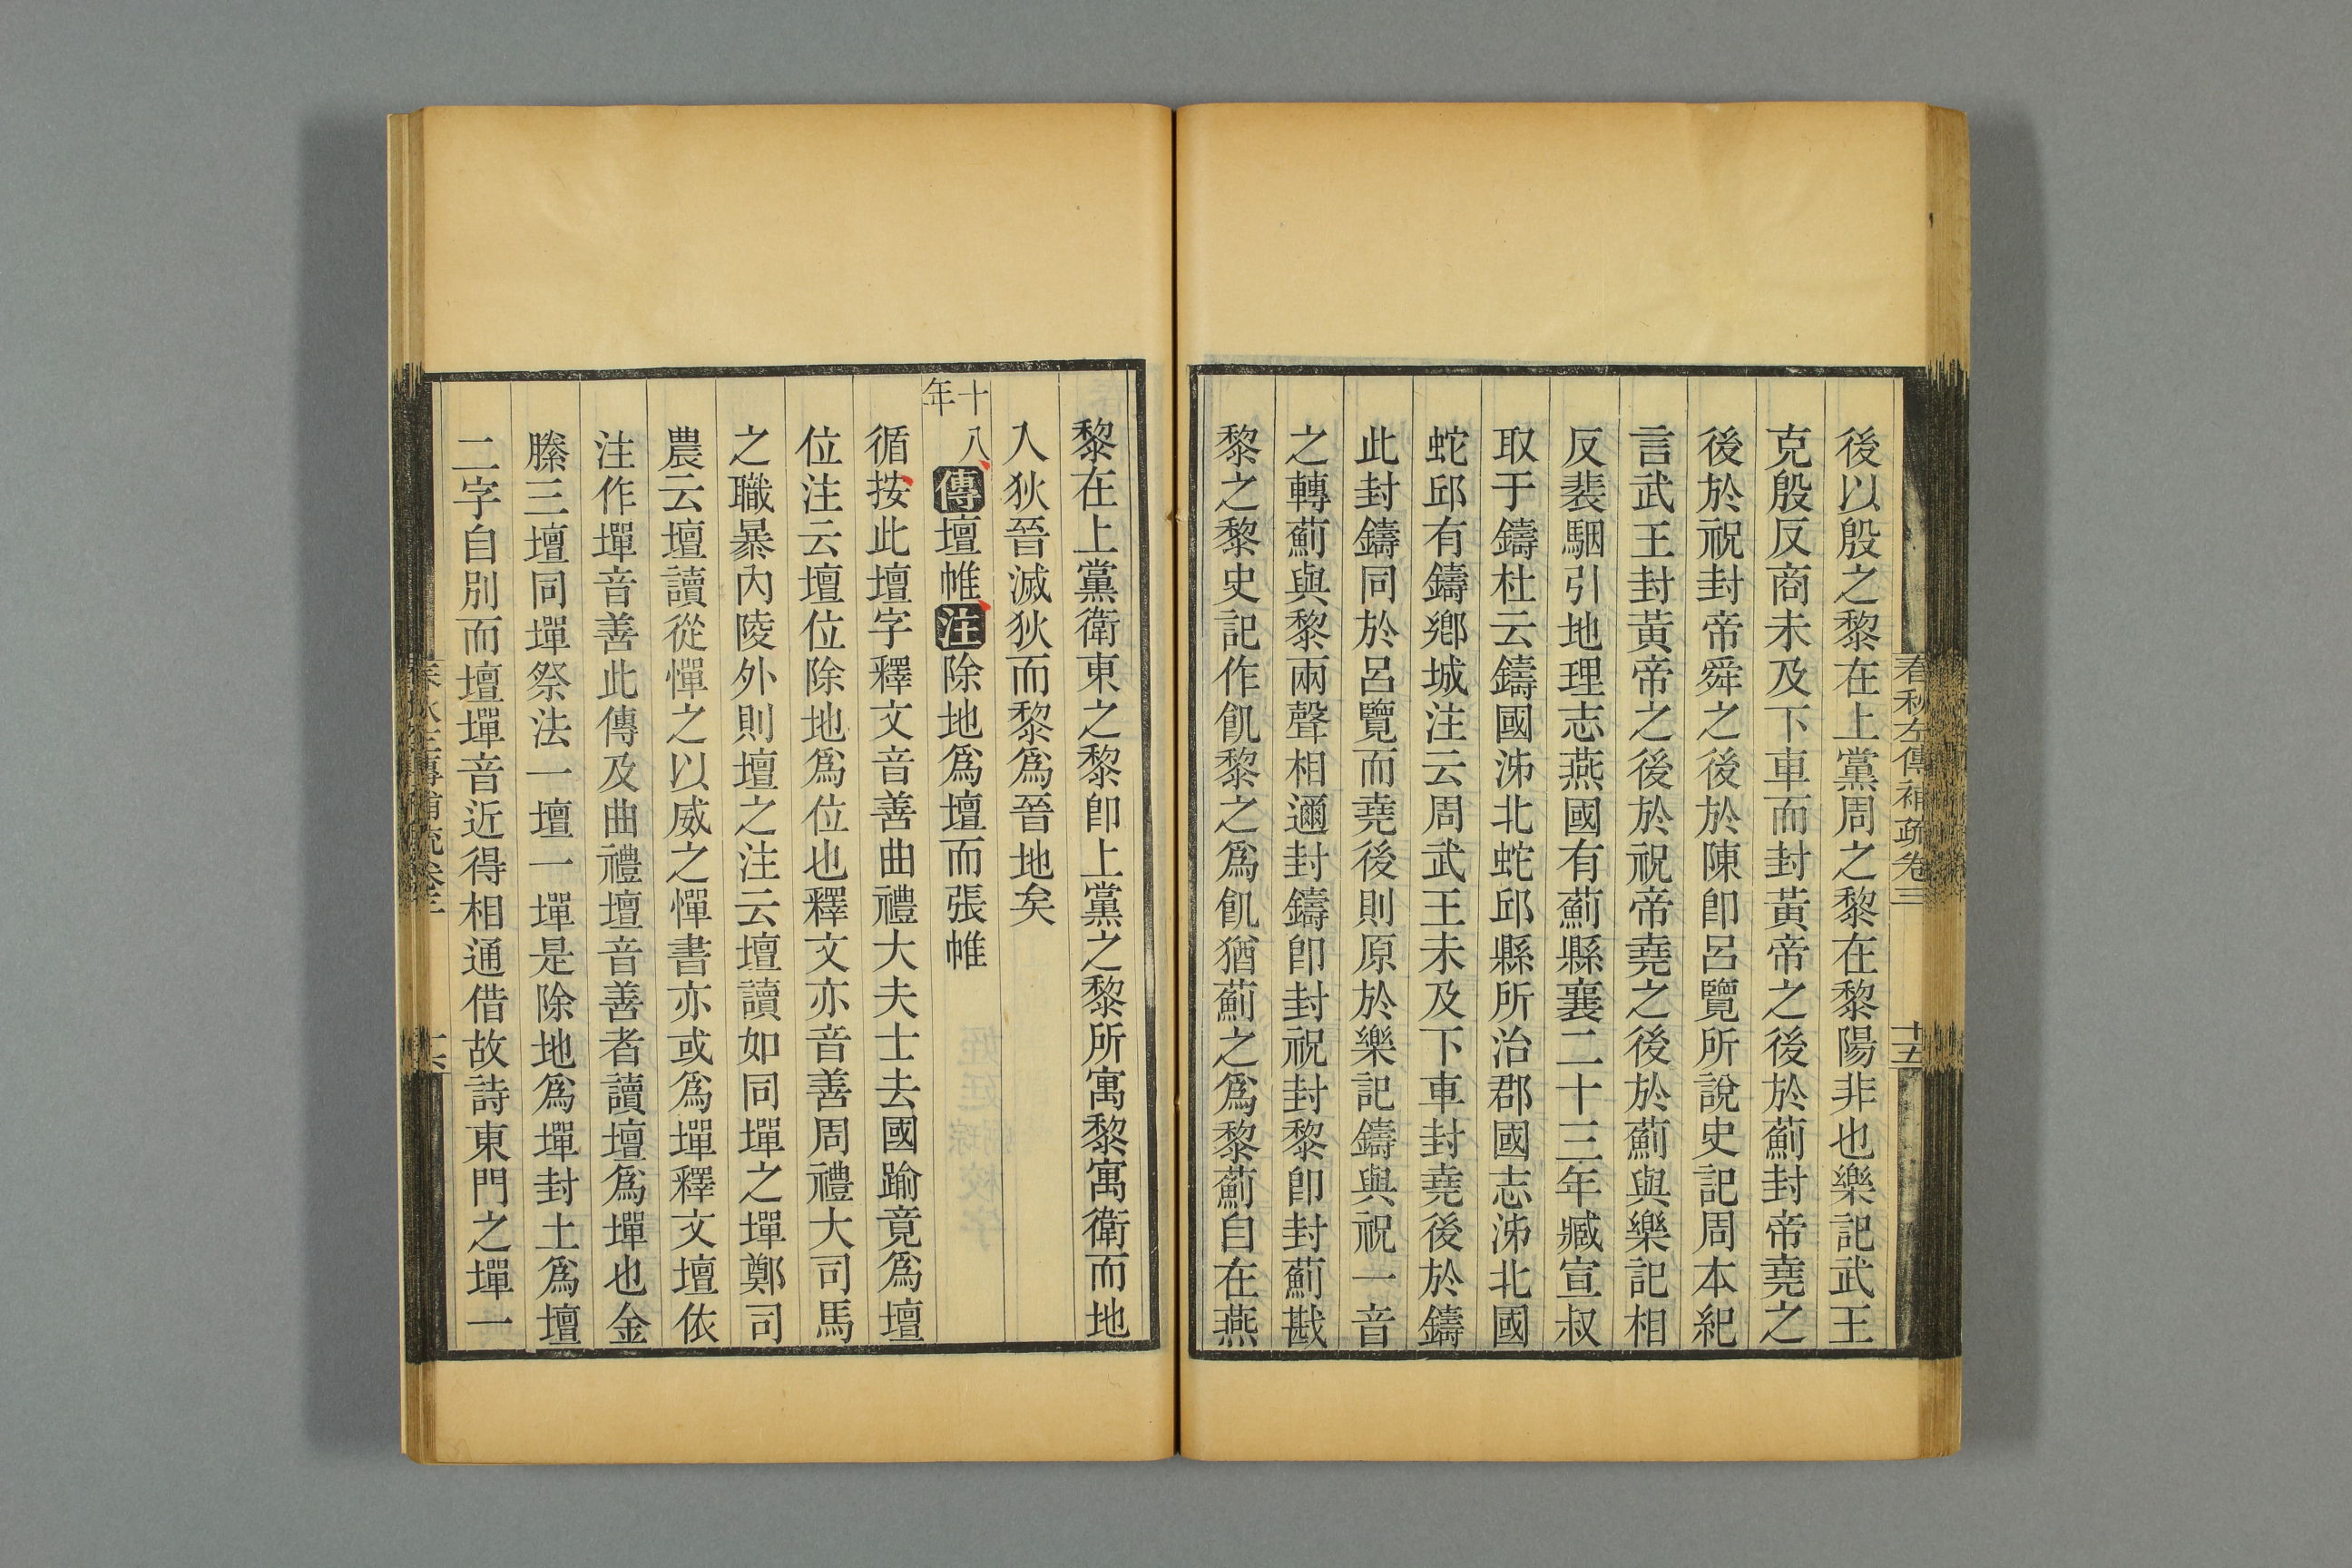 春秋左傳補疏卷三
十五
後以殷之黎在上黨周之黎在黎陽非也樂記武王
克殷反商未及下車而封黃帝之後於薊封帝堯之
後於祝封帝舜之後於陳卽呂覽所說史記周本紀
言武王封黃帝之後於祝帝堯之後於薊與樂記相
反裴駰引地理志燕國有薊縣襄二十三年臧宣叔
取于鑄杜云鑄國泲北蛇邱縣所治郡國志泲北國
蛇邱有鑄鄉城注云周武王未及下車封堯後於鑄
此封鑄同於呂覽而堯後則原於樂記鑄與祝一音
之轉薊與黎兩聲相邇封鑄卽封祝封黎卽封薊戡
黎之黎史記作飢黎之爲飢猶薊之爲黎薊自在燕
黎在上黨衛東之黎卽上黨之黎所寓黎寓衛而地
入狄晉滅狄而黎爲晉地矣
十八年傳壇帷注除地爲壇而張帷
循按此壇字釋文音善曲禮大夫士去國踰竟爲壇
位注云壇位除地爲位也釋文亦音善周禮大司馬
之職暴內陵外則壇之注云壇讀如同墠之墠鄭司
農云壇讀從憚之以威之憚書亦或爲墠釋文壇依
注作墠音善此傳及曲禮壇音善者讀壇爲墠也金
縢三壇同墠祭法一壇一墠是除地爲墠封土爲壇
二字自別而壇墠音近得相通借故詩東門之墠一
春秋左傳補疏卷三
十六